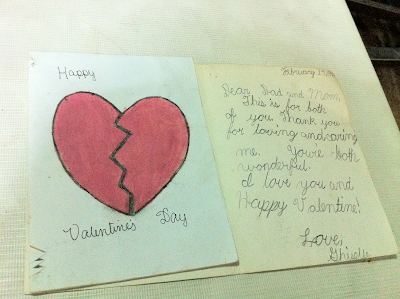 Happy
Valentine's Day
February
Dear Dad and Mom,
This is for both
of you. Thank you
for loving and caring
me. You're both
wonderful.
I love you and
Happy Valentine!
Love,